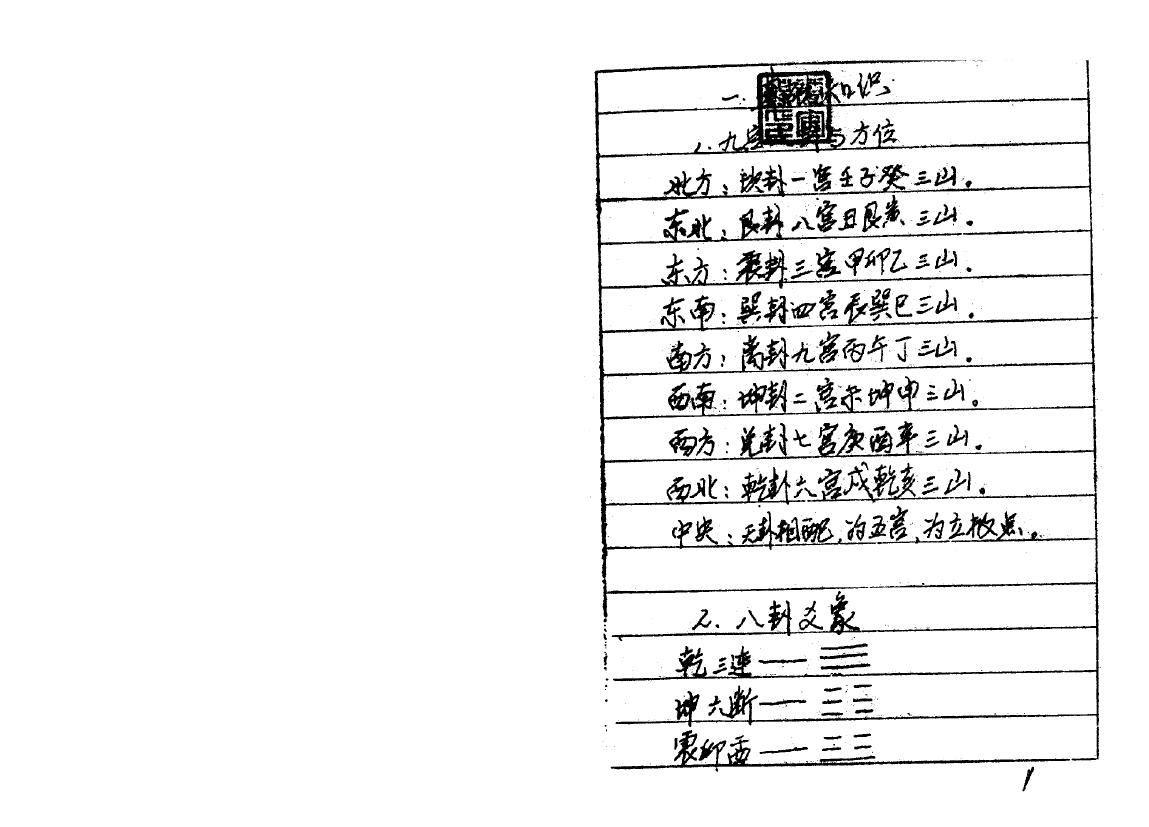 一. 知识
1. 九宫 与方位
北方：坎卦一宫壬子癸三山。
东北：艮卦八宫丑艮寅三山。
东方：震卦三宫甲卯乙三山。
东南：巽卦四宫辰巽巳三山。
南方：离卦九宫丙午丁三山。
西南：坤卦二宫未坤申三山。
西方：兑卦七宫庚酉辛三山。
西北：乾卦六宫戌乾亥三山。
中央：无卦相配，为五宫，为立极点。
2. 八卦爻象
乾三连——☰
坤六断——☷
震仰盂——☳
1